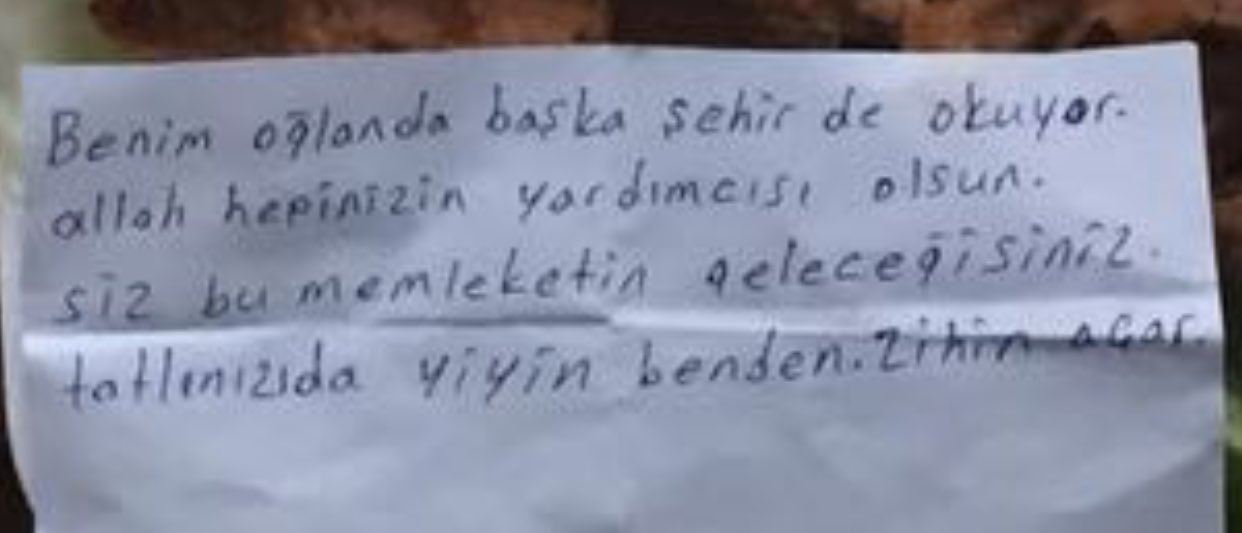 Benim oğlanda başka şehir de okuyor.
allah hepinizin yardımcısı olsun.
siz bu memleketin geleceğisiniz.
tatlınızıda yiyin benden. Zihin açar.